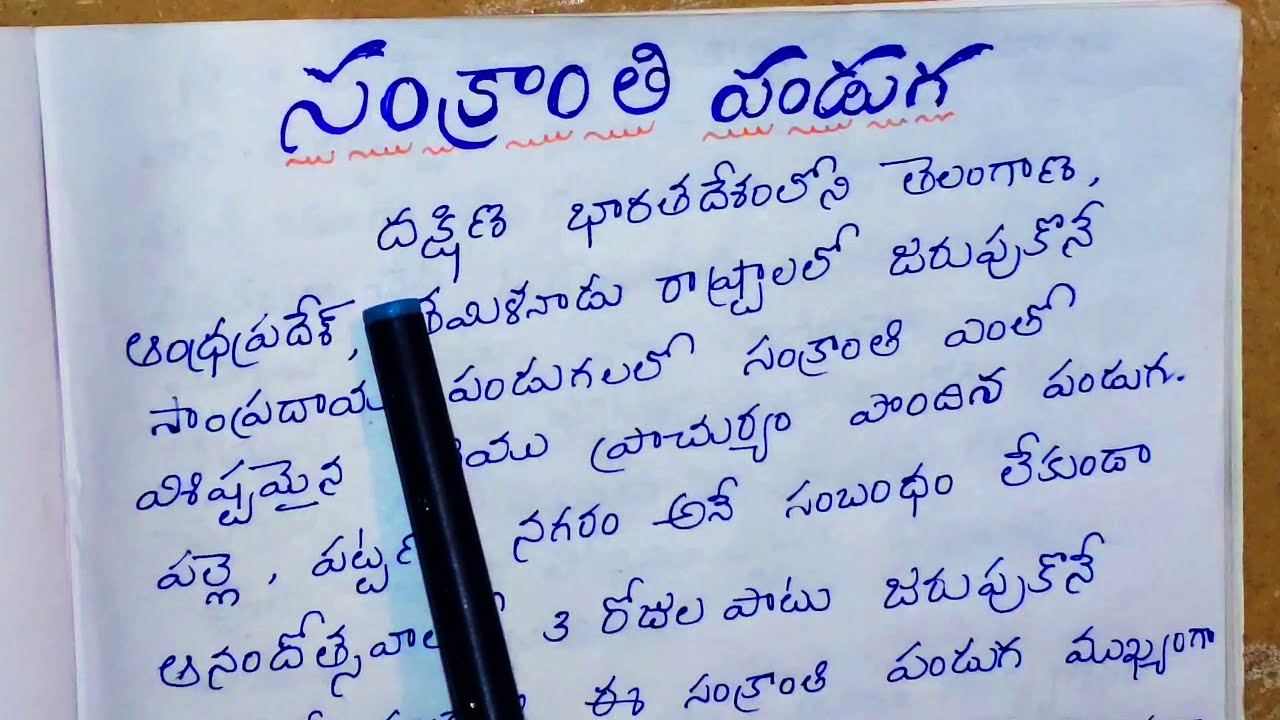 సంక్రాంతి పండుగ
దక్షిణ భారతదేశంలోని తెలంగాణ,
ఆంధ్రప్రదేశ్, తమిళనాడు రాష్ట్రాలలో జరుపుకొనే
సాంప్రదాయ పండుగలలో సంక్రాంతి ఎంతో
విశిష్టమైన ప్రాచుర్యం పొందిన పండుగ.
పల్లె, నగరం అనే సంబంధం లేకుండా
3 రోజుల పాటు జరుపుకొనే
ఈ సంక్రాంతి పండుగ ముఖ్యంగా